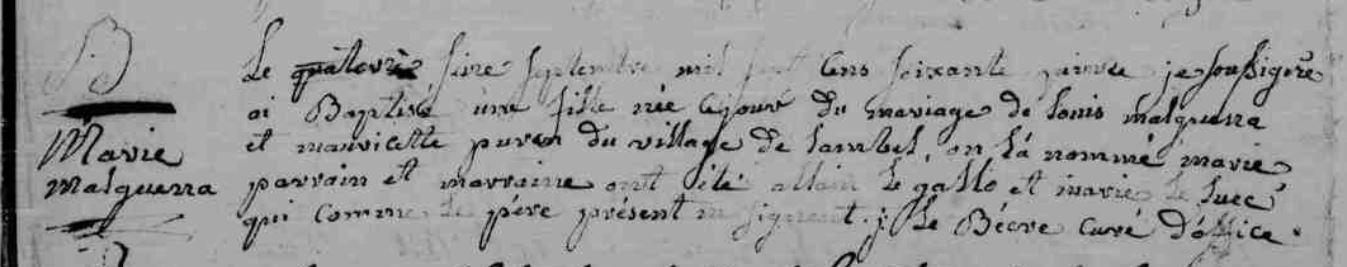 B
Marie
malguerra
Le quatorze seize septembre mil sept Cens soixante quinze je soussigné
ai Baptisé une fille née cejour du mariage de Louis malguerra
et mauricette puren du village de Lambel, on la nommé marie
parrain et marraine ont été allain Le gallo et marie Le Luee
qui comme Le père présent ne signent. j. Le Bécre curé d'office.